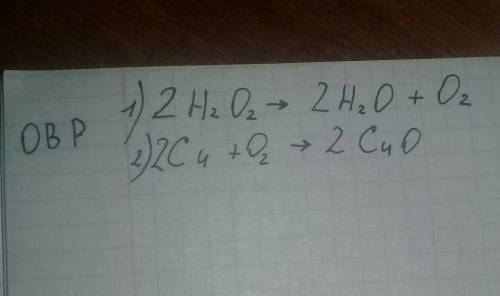 ОВР
1) 2H₂O₂ → 2H₂O + O₂
2) 2Cu + O₂ → 2CuO